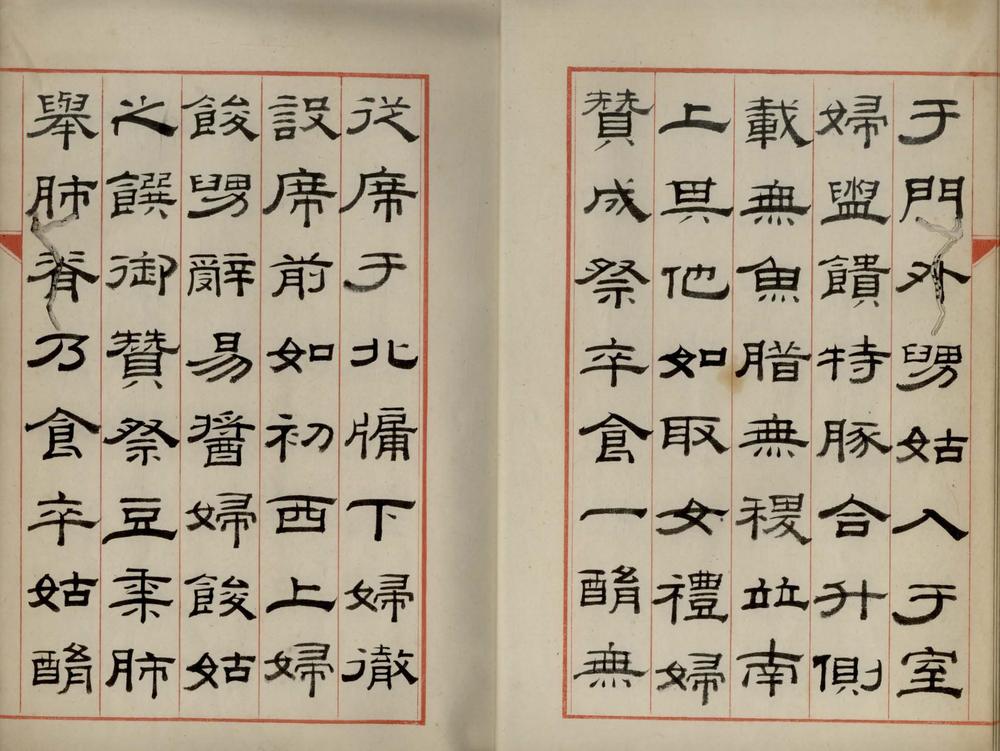 于門外舅姑入于室
婦盥饋特豚合升側
載無魚腊無稷竝南
上其他如取女禮婦
贊成祭卒食一酳無
從席于北牗下婦徹
設席前如初西上婦
餕舅辭易醬婦餕姑
之饌御贊祭豆黍肺
舉肺脊乃食卒姑酳